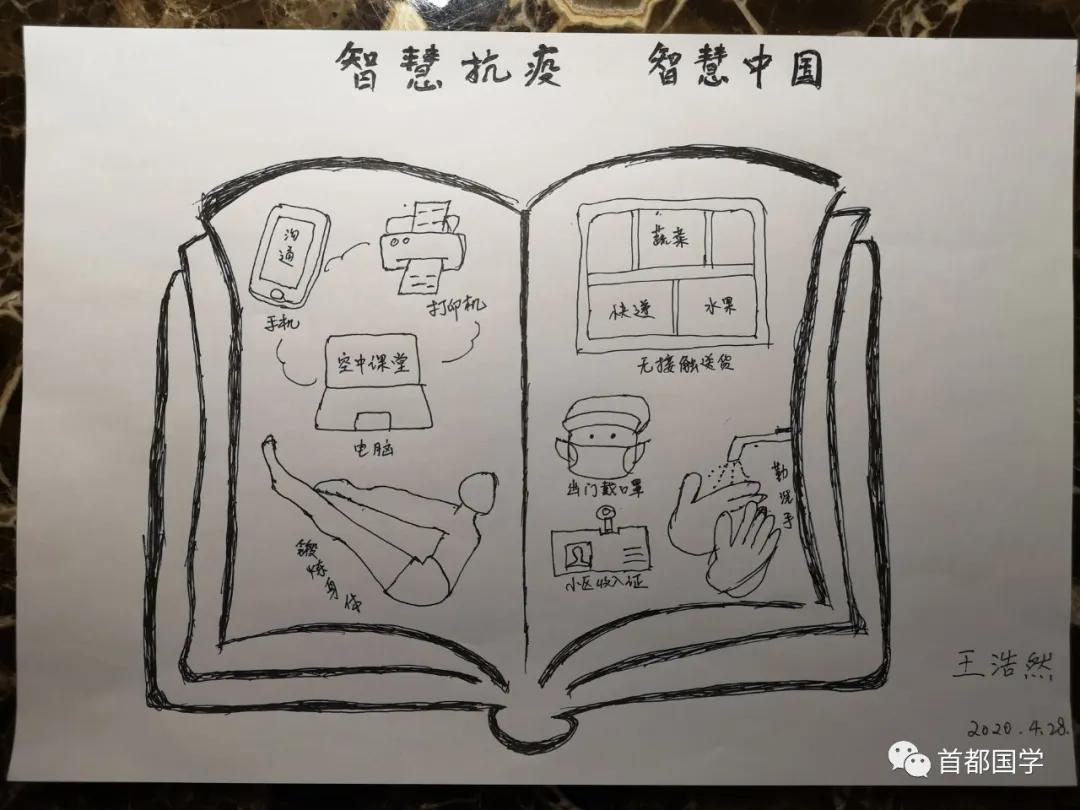 智慧抗疫 智慧中国
沟通
手机
打印机
空中课堂
电脑
锻炼身体
蔬菜
快递
水果
无接触送货
出门戴口罩
勤洗手
小区收入证
王浩然
2020.4.28.
首都国学